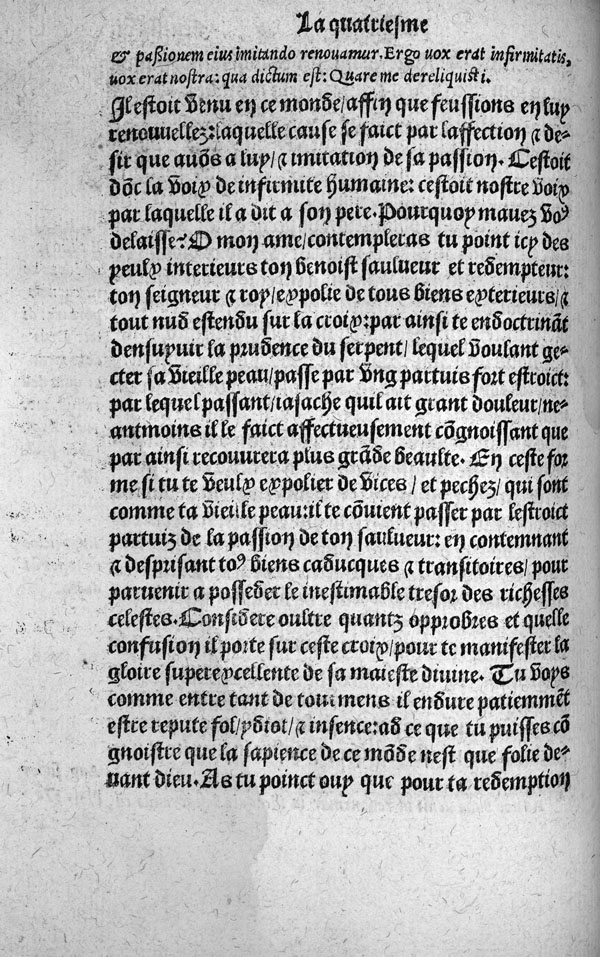 La quatriesme
& paßionem eius imitando renouamur. Ergo uox erat infirmitatis,
uox erat nostra: qua dictum est: Quare me dereliquisti.
Il estoit venu en ce monde/affin que feussions en luy
renouuellez:laquelle cause se faict par laffection ⁊ de-
sir que auõs a luy/⁊ imitation de sa passion. Cestoit
dõc la voix de infirmite humaine: cestoit nostre voix
par laquelle il a dit a son pere.Pourquoy mauez voꝰ
delaisse? O mon ame/contempleras tu point icy des
yeulx interieurs ton benoist saulueur et redempteur:
ton seigneur ⁊ roy/expolie de tous biens exterieurs/⁊
tout nud estendu sur la croix:par ainsi te endoctrinãt
densuyuir la prudence du serpent/ lequel voulant ge-
cter sa vieille peau/passe par vng partuis fort estroict:
par lequel passant/iasache quil ait grant douleur/ne-
antmoins il le faict affectueusement cõgnoissant que
par ainsi recouurera plus grãde beaulte. En ceste for
me si tu te veulx expolier de vices / et pechez/ qui sont
comme ta vieille peau:il te cõuient passer par lestroict
partuiz de la passion de ton saulueur: en contemnant
⁊ desprisant toꝰ biens caducques ⁊ transitoires/ pour
paruenir a posseder le inestimable tresor des richesses
celestes.Considere oultre quantz opprobres et quelle
confusion il porte sur ceste croix/pour te manifester la
gloire superexcellente de sa maieste diuine. Tu voys
comme entre tant de tourmens il endure patiemmẽt
estre repute fol/ydiot/⁊ insence:ad ce que tu puisses cõ
gnoistre que la sapience de ce mõde nest que folie de-
uant dieu.As tu poinct ouy que pour ta redemption